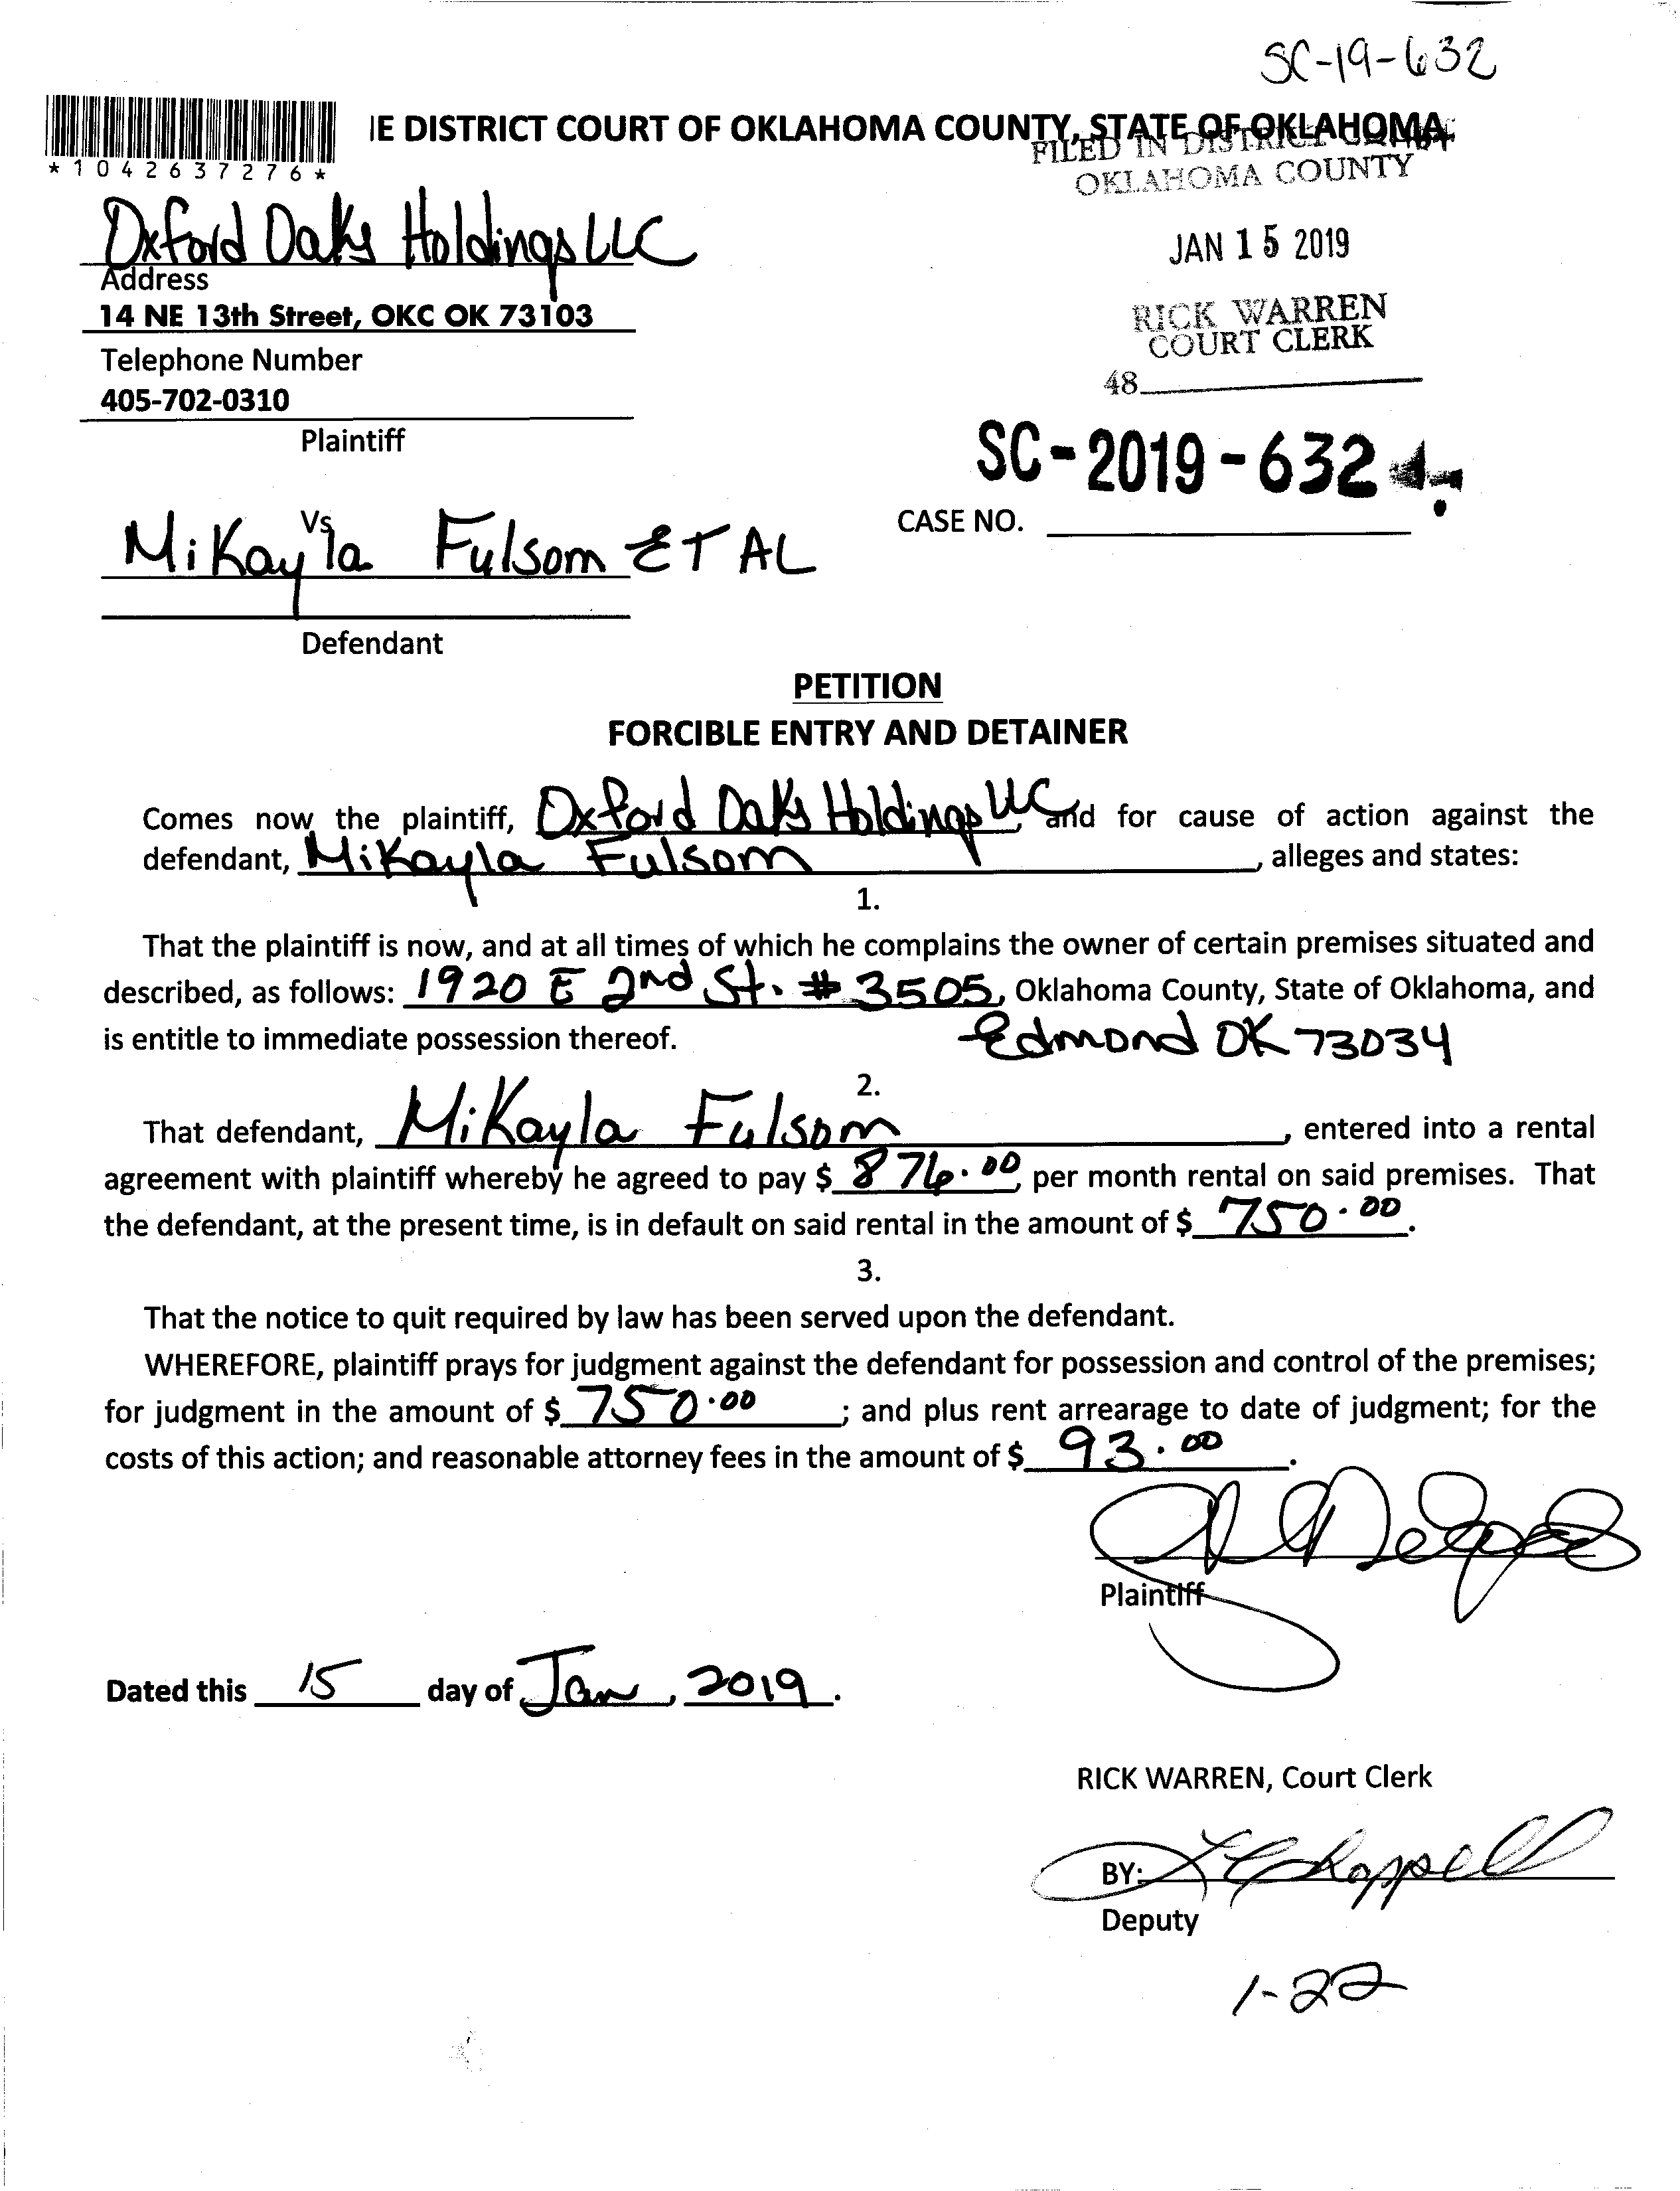 SC-19-632
IE DISTRICT COURT OF OKLAHOMA COUNTY, STATE OF OKLAHOMA
*1042637276*
FILED IN DISTRICT COURT
OKLAHOMA COUNTY
Oxford Oaks Holdings LLC
JAN 15 2019
Address
14 NE 13th Street, OKC OK 73103
RICK WARREN
COURT CLERK
Telephone Number
48
405-702-0310
Plaintiff
SC-2019-632
Vs
CASE NO.
Mikayla Fulsom ET AL
Defendant
PETITION
FORCIBLE ENTRY AND DETAINER
Comes now the plaintiff, Oxford Oaks Holdings LLC, and for cause of action against the
defendant, Mikayla Fulsom, alleges and states:
1.
That the plaintiff is now, and at all times of which he complains the owner of certain premises situated and
described, as follows: 1920 E 2nd St. # 3505, Oklahoma County, State of Oklahoma, and
is entitle to immediate possession thereof. Edmond OK 73034
2.
That defendant, Mikayla Fulsom, entered into a rental
agreement with plaintiff whereby he agreed to pay $ 876.00, per month rental on said premises. That
the defendant, at the present time, is in default on said rental in the amount of $ 750.00.
3.
That the notice to quit required by law has been served upon the defendant.
WHEREFORE, plaintiff prays for judgment against the defendant for possession and control of the premises;
for judgment in the amount of $ 750.00; and plus rent arrearage to date of judgment; for the
costs of this action; and reasonable attorney fees in the amount of $ 93.00.
Plaintiff
Dated this 15 day of Jan, 2019.
RICK WARREN, Court Clerk
BY: Chappell
Deputy
1-22